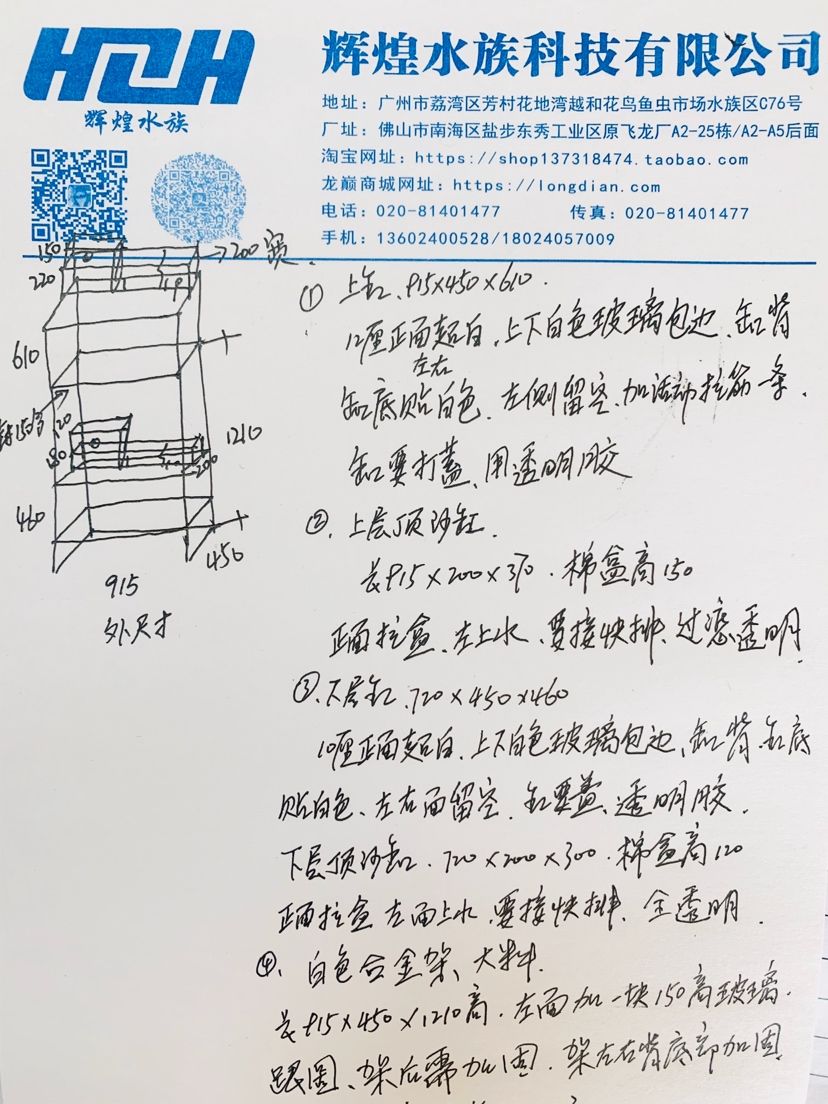 HZH
辉煌水族
辉煌水族科技有限公司
地址：广州市荔湾区芳村花地湾越和花鸟鱼虫市场水族区C76号
厂址：佛山市南海区盐步东秀工业区原飞龙厂A2-25栋/A2-A5后面
淘宝网址：https://shop137318474.taobao.com
龙巅商城网址：https://longdian.com
电话：020-81401477 传真：020-81401477
手机：13602400528/18024057009
150
220
→200宽.
610
150高
120
180
200
1210
460
450
915
外尺寸
① 上缸、915×450×610.
12厘正面超白，上下白色玻璃包边、缸背
左右
缸底贴白色、左侧留空、加活动拉筋一条.
缸要打盖、用透明胶
②、上层顶沙缸.
长915×200×370.棉盒高150
正面拉盒、左上水、要接快排、过滤透明.
③、下层缸、720×450×460
10厘正面超白、上下白色玻璃包边、缸背、缸底
贴白色、左右面留空.缸要盖、透明胶.
下层顶沙缸.720×200×300.棉盒高120
正面拉盒 左面上水、要接快排、全透明.
④、白色合金架、大料.
长915×450×1210高.左面加一块150高玻璃.
跟图、架后需加固.架左右背底部加固